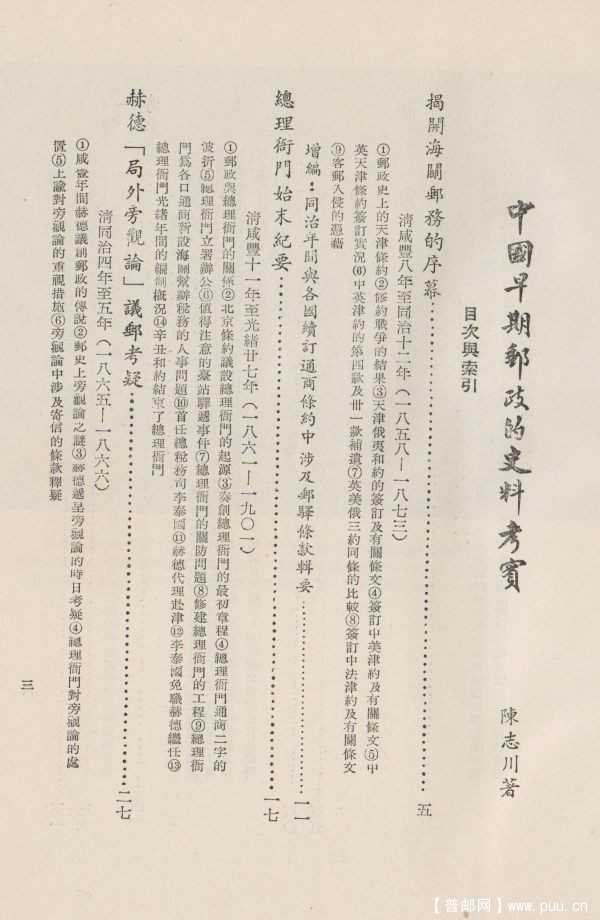 中國早期郵政的史料考實
陳志川著
目次與索引
揭開海關郵務的序幕⋯⋯五
清咸豐八年至同治十二年(一八五八—一八七三)
①郵政史上的天津條約②修約戰爭的結果③天津俄夷和約的簽訂及有關條文④簽訂中美津約及有關條文⑤中
英天津條約簽訂實況⑥中英津約的第四款及卅一款補遺⑦英美俄三約同條的比較⑧簽訂中法津約及有關條文
⑨客郵入侵的憑藉
增編:同治年間與各國續訂通商條約中涉及郵驛條款輯要⋯⋯一一
總理衙門始末紀要⋯⋯一七
清咸豐十一年至光緒廿七年(一八六一—一九〇一)
①郵政與總理衙門的關係②北京條約議設總理衙門的起源③奏創總理衙門的最初章程④總理衙門通商二字的
波折⑤總理衙門立署辦公⑥值得注意的臺站驛遞事件⑦總理衙門的關防問題⑧修建總理衙門的工程⑨總理衙
門爲各口通商新設海關幫辦稅務的人事問題⑩首任總稅務司李泰國⑪赫德代理赴津⑫李泰國免職赫德繼任⑬
總理衙門光緒年間的編制概況⑭辛丑和約結束了總理衙門
赫德「局外旁觀論」議郵考疑⋯⋯二七
清同治四年至五年(一八六五—一八六六)
①咸豐年間赫德議創郵政的傳說②郵史上旁觀論之謎③赫德遞呈旁觀論的時日考疑④總理衙門對旁觀論的處
置⑤上諭對旁觀論的重視措施⑥旁觀論中涉及寄信的條款釋疑
三
【普邮网】www.puu.cn